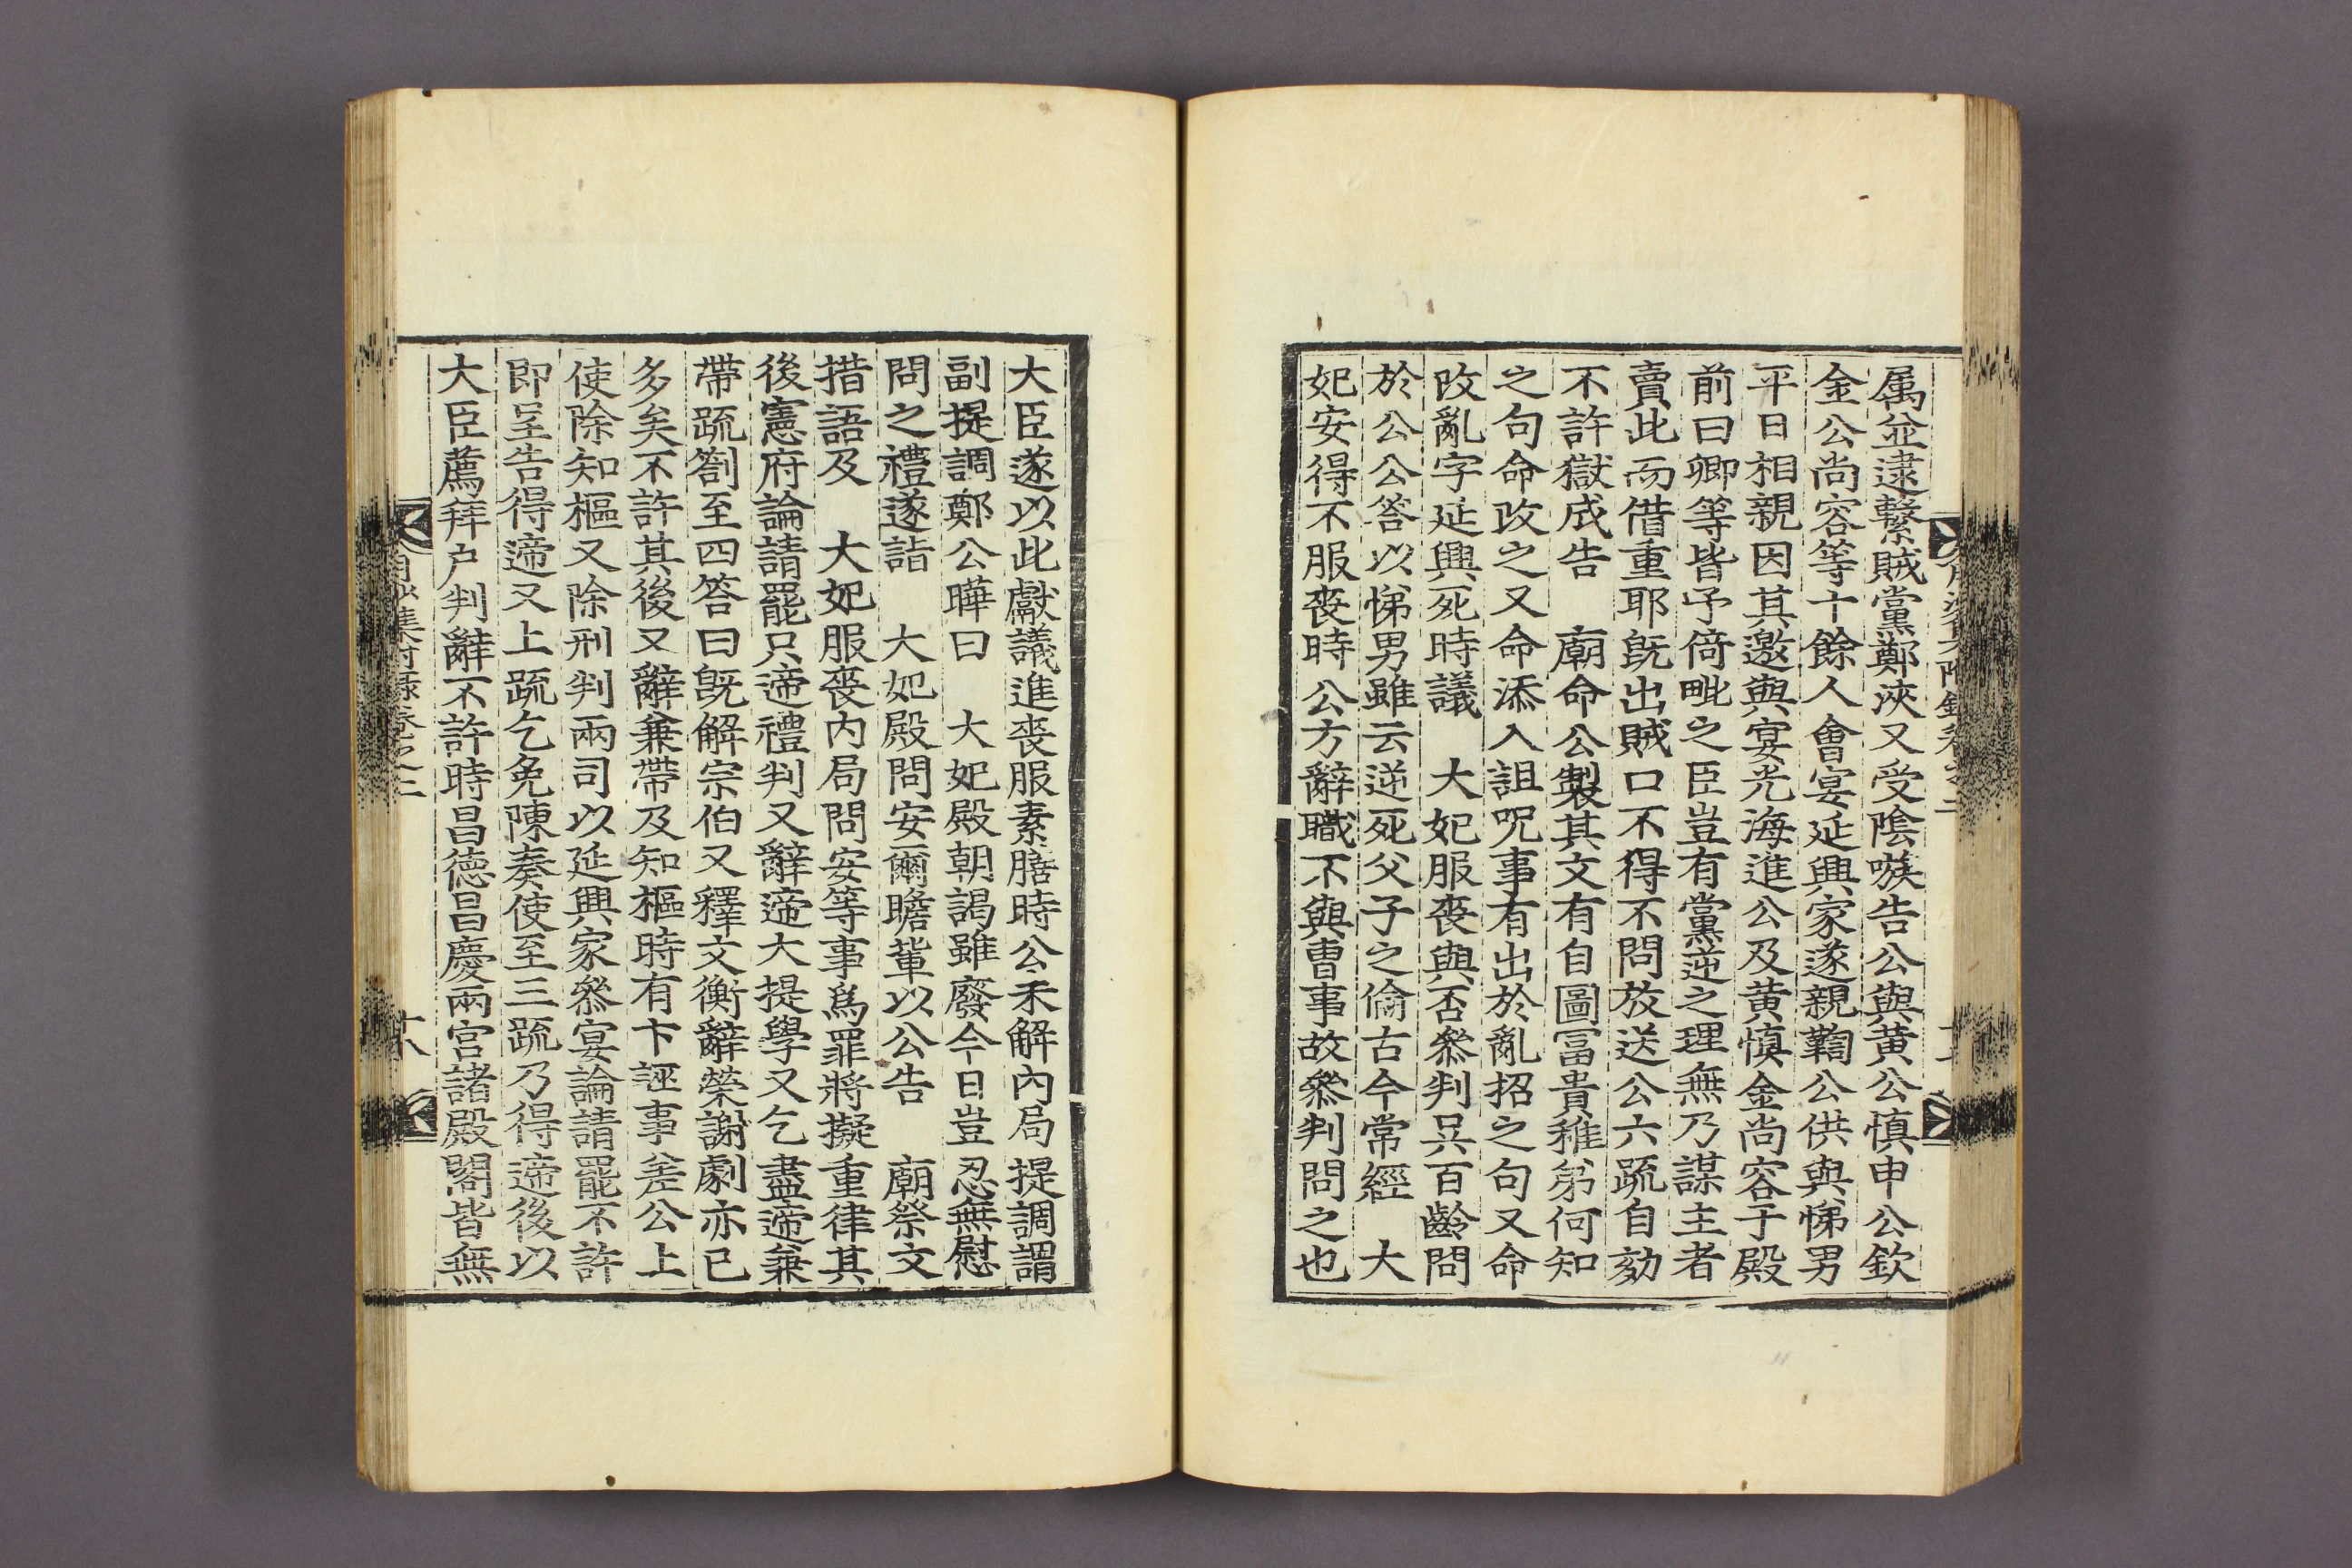 属並逮繫賊黨鄭浹又受陰嗾告公與黄公愼申公欽
金公尚容等十餘人會宴延興家遂親鞫公供與悌男
平日相親因其邀與宴光海進公及黄愼金尚容于殿
前曰卿等皆予倚毗之臣豈有黨逆之理無乃謀主者
賣此而借重耶既出賊口不得不問放送公六疏自劾
不許獄成告　廟命公製其文有自圖冨貴稚弟何知
之句命改之又命添入詛呪事有出於亂招之句又命
改亂字延興死時議　大妃服喪與否叅判吴百齡問
於公公答以悌男雖云逆死父子之倫古今常經　大
妃安得不服喪時公方辭職不與曹事故叅判問之也
大臣遂以此獻議進喪服素膳時公未解内局提調謂
副提調鄭公曄曰　大妃殿朝謁雖廢今日豈忍無慰
問之禮遂詣　大妃殿問安爾瞻軰以公告　廟祭文
措語及　大妃服喪内局問安等事爲罪將擬重律其
後憲府論請罷只遞禮判又辭遞大提學又乞盡遞兼
帶疏劄至四答曰既解宗伯又釋文衡辭榮謝劇亦已
多矣不許其後又辭兼帶及知樞時有卞誣事差公上
使除知樞又除刑判兩司以延興家叅宴論請罷不許
即呈告得遞又上疏乞免陳奏使至三疏乃得遞後以
大臣薦拜户判辭不許時昌德昌慶兩宮諸殿閣皆無
月沙集附録卷之二
十八